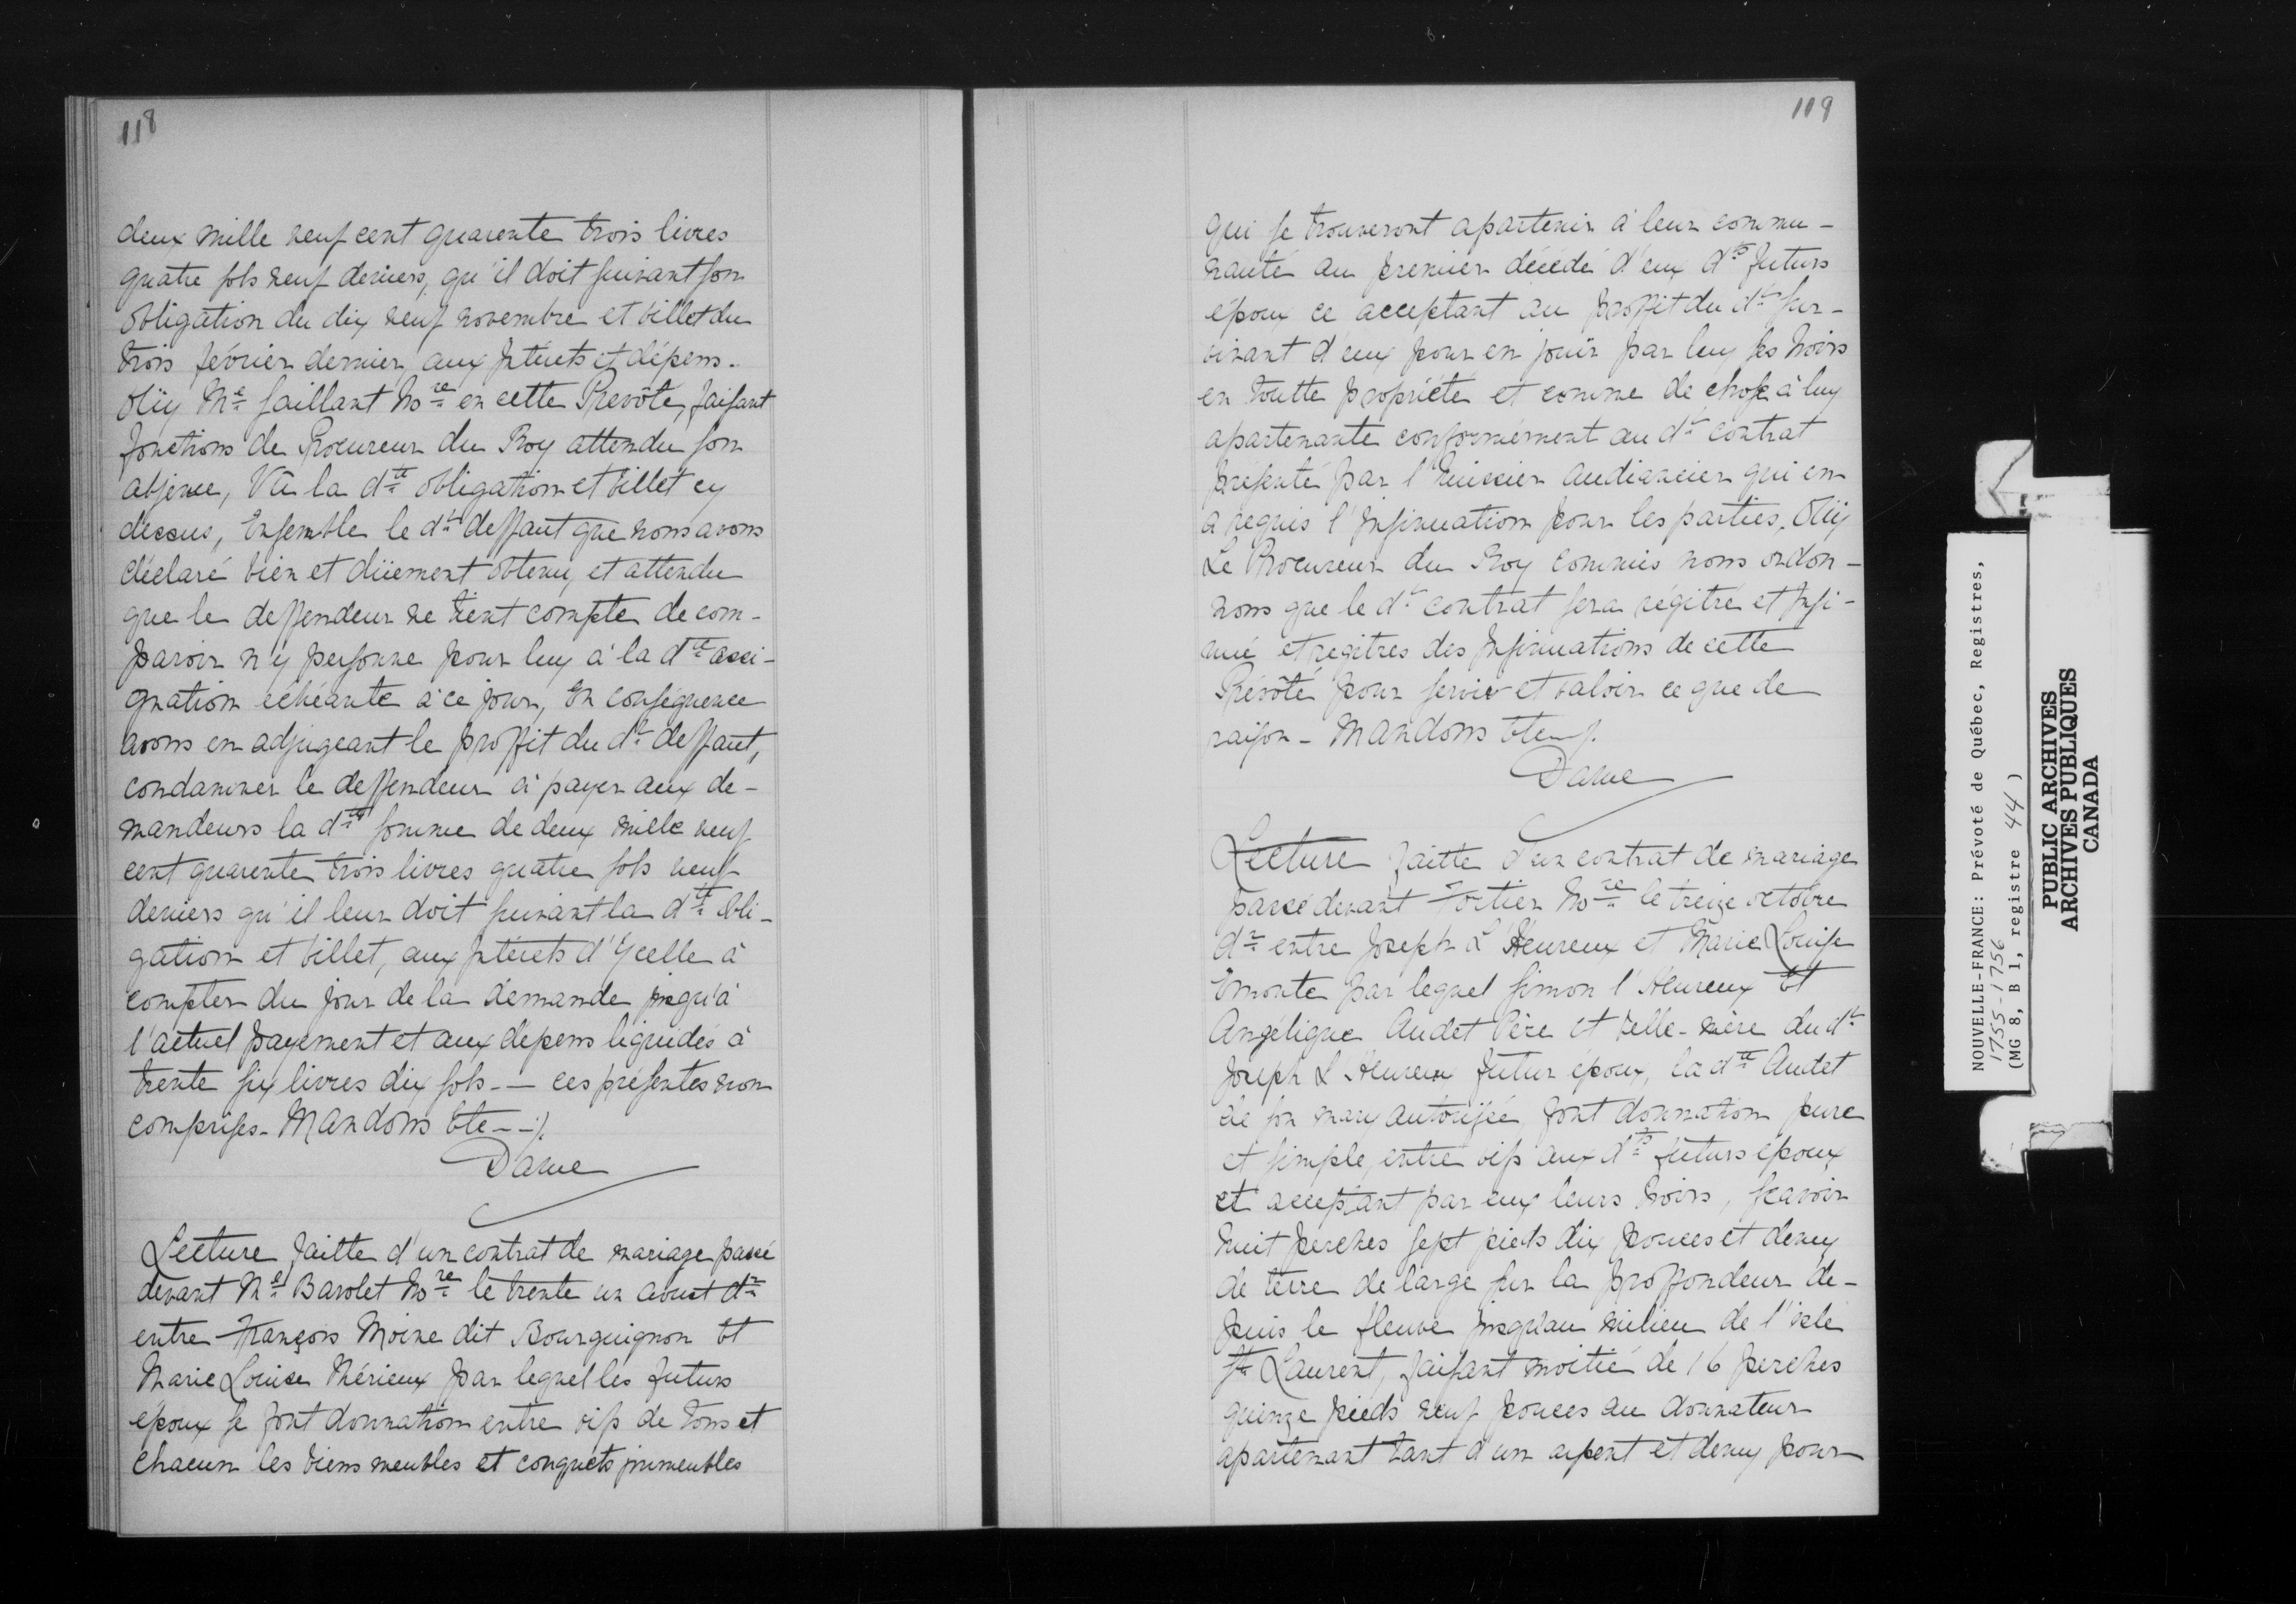 118
deux mille neuf cent quarente trois livres
quatre sols neuf deniers, qu'il doit suivant son
obligation du dix neuf novembre et billet du
trois février dernier aux Intérets et dépens.
Oüy Me Saillant Nore en cette Prevôté, faisant
fonctions de Procureur du Roy attendu son
absence, Vû la dte obligation et billet cy
dessus, Ensemble le dt deffaut que nous avons
déclaré bien et düement obtenu, et attendu
que le deffendeur ne tient compte de com-
paroir n'y personne pour luy à la dte assi-
gnation echéante à ce jour, En conséquence
avons en adjugeant le proffit du dt deffaut,
condamner le deffendeur à payer aux de-
mandeurs la dte somme de deux mille neuf
cent quarente trois livres quatre sols neuf
deniers qu'il leur doit suivant la dte obli-
gation et billet, aux Intérets d'Ycelle à
compter du jour de la demande jusqu'à
l'actuel payement et aux dépens liquidés à
trente six livres dix sols - — ces présentes non
comprises - Mandons Etc --/.
Daine
Lecture faitte d'un contrat de mariage passé
devant Me Barolet Nore le trente un aoust dr
entre François Moine dit Bourguignon Et
Marie Louise Mérieux par lequel les futurs
époux se font donnation entre vifs de tous et
chacun les biens meubles et conquêts immeubles
119
qui se trouveront apartenir à leur commu-
nauté au premier décédé d'eux dts futurs
époux ce acceptant au proffit du dt sur-
vivant d'eux pour en jouir par luy ses hoirs
en toutte propriété et comme de chose à luy
apartenante conformément au dt contrat
présenté par l'huissier audiancier qui en
a requis l'Insinuation pour les parties, Oüy
Le Procureur du Roy commis nous ordon-
nons que le dt contrat sera régitré et Insi-
nué et regitres des Insinuations de cette
Prévôté pour servir et valoir ce que de
raison - Mandons Etc /.
Daine
Lecture faitte d'un contrat de mariage
passé devant Fortier Nore le treize octobre
dr entre Joseph L'Heureux et Marie Louise
Emonte par lequel Simon l'Heureux Et
Angélique Audet Père et belle-mère du dt
Joseph L'Heureux futur époux, la dte Audet
de son mary autorisée font donnation pure
et simple entre vifs aux dts futurs époux
et acceptant par eux leurs hoirs, scavoir
huit perches sept pieds dix pouces et demy
de terre de large sur la proffondeur de-
puis le fleuve jusqu'au milieu de l'isle
St Laurent, faisant moitié de 16 perches
quinze pieds neuf pouces au donnateur
apartenant tant d'un arpent et demy pour
NOUVELLE-FRANCE: Prévôté de Québec, Registres,
1755-1756
(MG 8, B 1, registre 44 )
PUBLIC ARCHIVES
ARCHIVES PUBLIQUES
CANADA